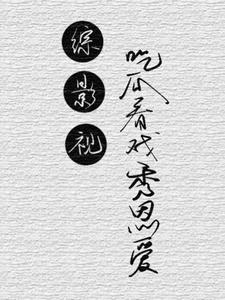 综影视
吃瓜看戏秀恩爱